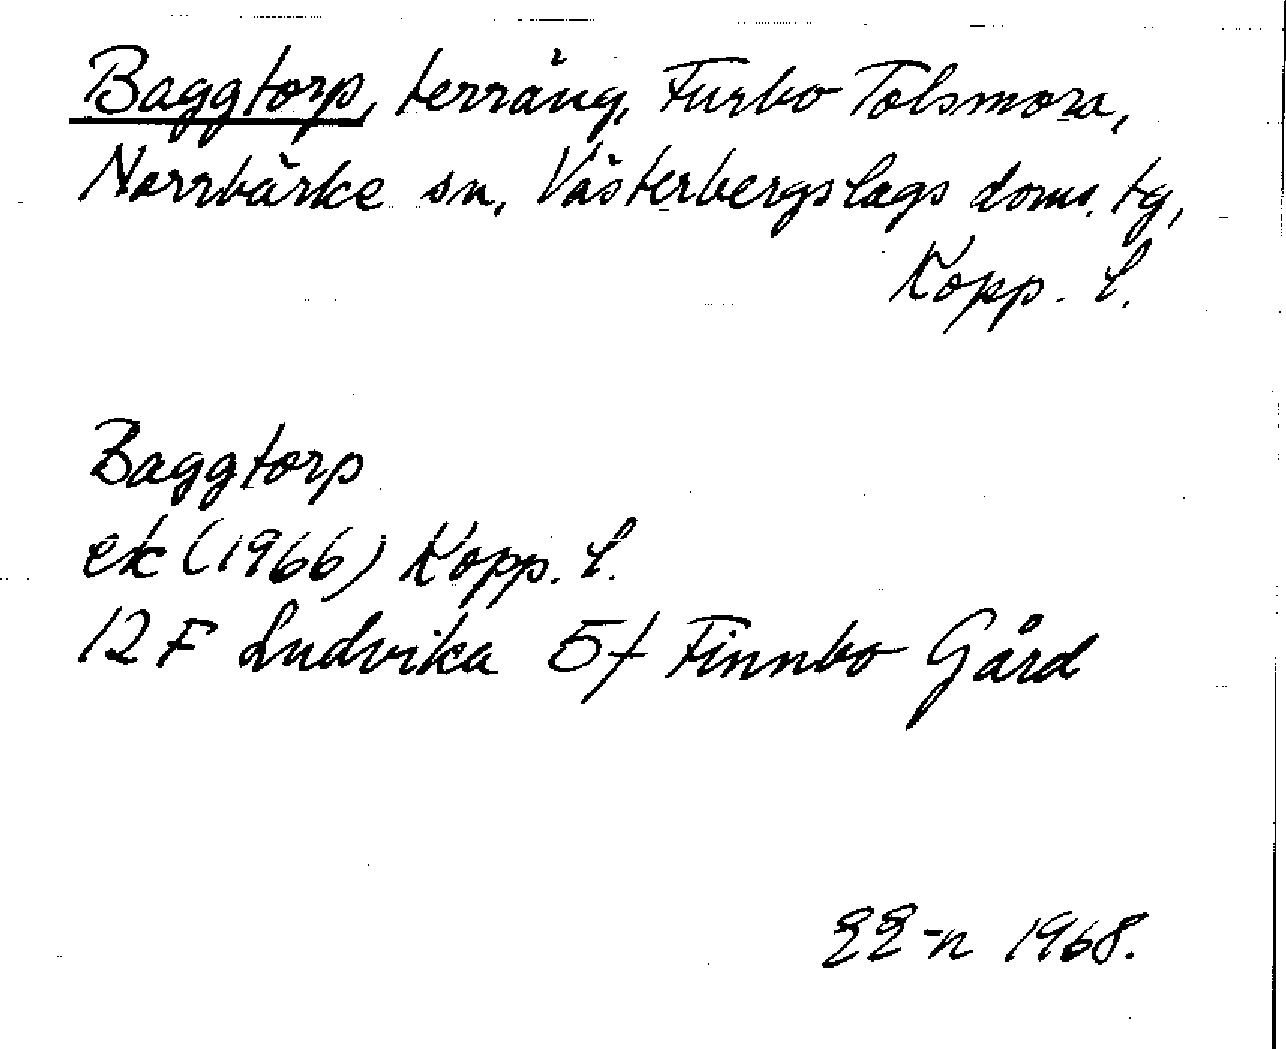 Baggtorp, terräng, Furbo Tolsmora,
Norrbärke sn, Västerbergslags doms. tg,
Kopp. l.
Baggtorp
ek (1966) Kopp. l.
12 F Ludvika 5f Finnbo Gård
EE-n 1968.